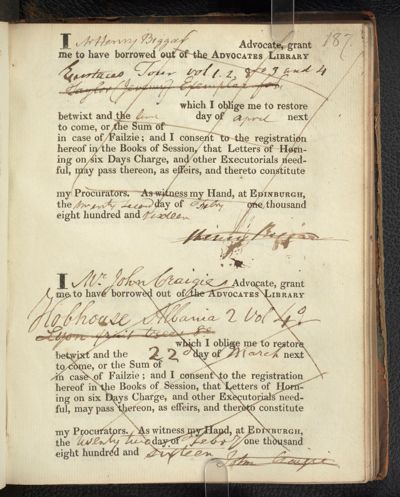 187.
I Mr Henry Biggar Advocate, grant
me to have borrowed out of the ADVOCATES LIBRARY
Eustaces Tour vol 1. 2, 3 and 4
which I oblige me to restore
betwixt and the day of april next
to come, or the Sum of
in case of Failzie; and I consent to the registration
hereof in the Books of Session, that Letters of Horn-
ing on six Days Charge, and other Executorials need-
ful, may pass thereon, as effeirs, and thereto constitute
my Procurators. As witness my Hand, at EDINBURGH,
the twenty second day of Febry one thousand
eight hundred and sixteen
Henry Biggar
I Mr. John Craigie Advocate, grant
me to have borrowed out of the ADVOCATES LIBRARY
Hobhouse Albania 2 Vol 4o
which I oblige me to restore
betwixt and the 22 day of March next
to come, or the Sum of
in case of Failzie; and I consent to the registration
hereof in the Books of Session, that Letters of Horn-
ing on six Days Charge, and other Executorials need-
ful, may pass thereon, as effeirs, and thereto constitute
my Procurators. As witness my Hand, at EDINBURGH,
the twenty two day of Feby one thousand
eight hundred and sixteen
John Craigie